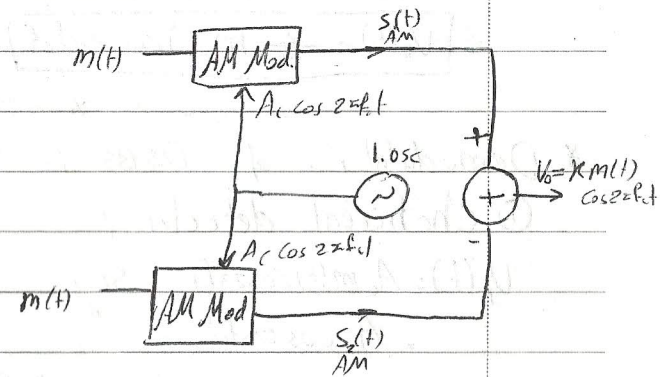 S₁(t)
AM
m(t)
AM Mod.
Ac cos 2πfct
+
l.osc
~
+
V₀=K m(t)
cos2πfct
-
Ac cos 2πfct
m(t)
AM Mod
S₂(t)
AM